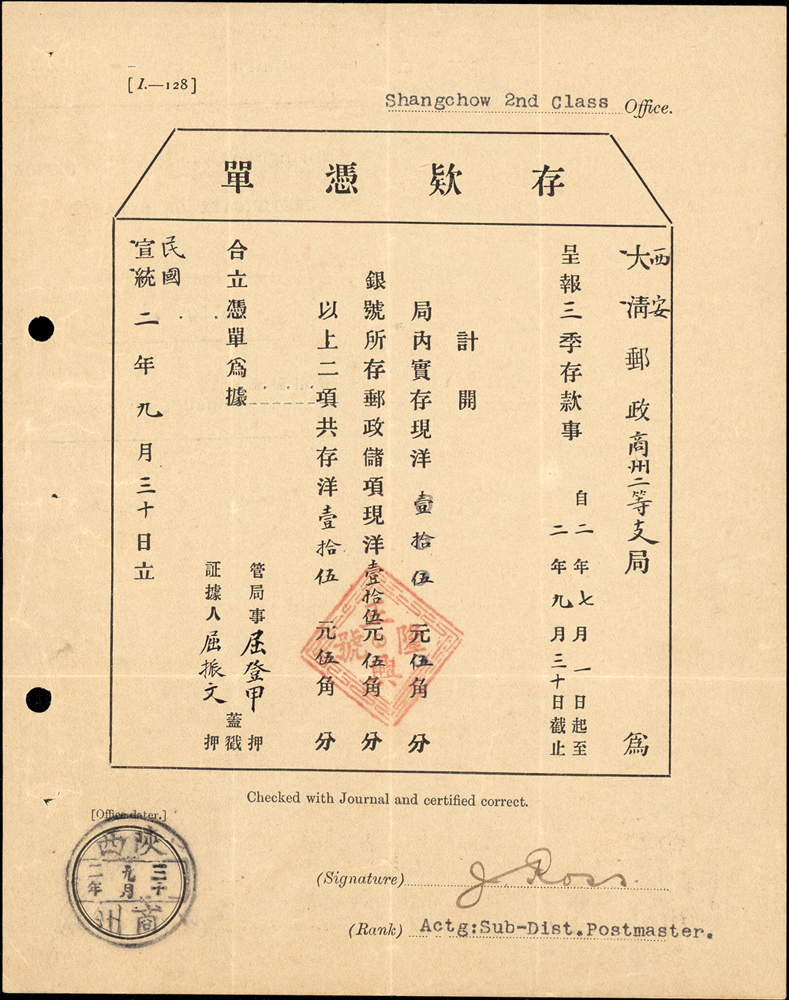 [I.—128]
Shangchow 2nd Class Office.
存欵憑單
西安
大清郵政商州二等支局 爲
呈報三季存款事 自二年七月一日起至
二年九月三十日截止
計開
局內實存現洋壹拾伍元伍角 分
銀號所存郵政儲項現洋壹拾伍元伍角 分
以上二項共存洋壹拾伍元伍角 分
合立憑單爲據
管局事屈登甲 押
蓋戳
証據人屈振文 押
民國
宣統二年九月三十日立
隆興
號
Checked with Journal and certified correct.
[Office dater.]
陝西
三十
九月
二年
商州
(Signature) J Ross
(Rank) Actg:Sub-Dist.Postmaster.